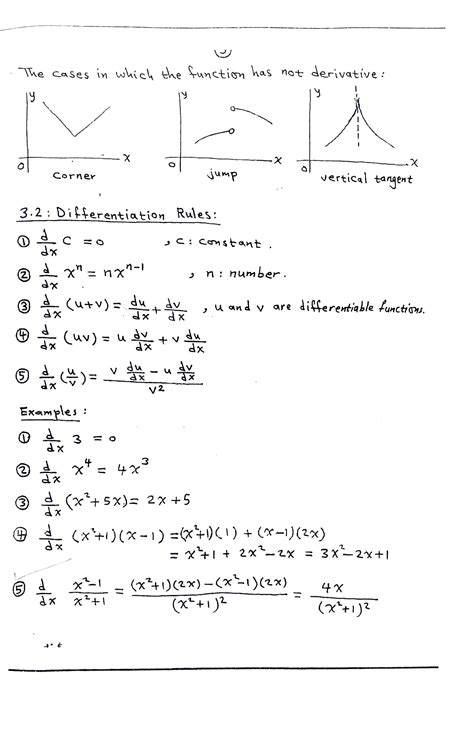 The cases in which the function has not derivative :
y y y
o x o x o x
corner jump vertical tangent
3.2 : Differentiation Rules :
① d/dx c = 0 , c : constant .
② d/dx xⁿ = nxⁿ⁻¹ , n : number .
③ d/dx (u+v) = du/dx + dv/dx , u and v are differentiable functions.
④ d/dx (uv) = u dv/dx + v du/dx
⑤ d/dx (u/v) = (v du/dx - u dv/dx)/v²
Examples :
① d/dx 3 = 0
② d/dx x⁴ = 4x³
③ d/dx (x²+5x) = 2x+5
④ d/dx (x²+1)(x-1) = (x²+1)(1) + (x-1)(2x)
= x²+1 + 2x²-2x = 3x²-2x+1
⑤ d/dx (x²-1)/(x²+1) = ((x²+1)(2x)-(x²-1)(2x))/(x²+1)² = 4x/(x²+1)²